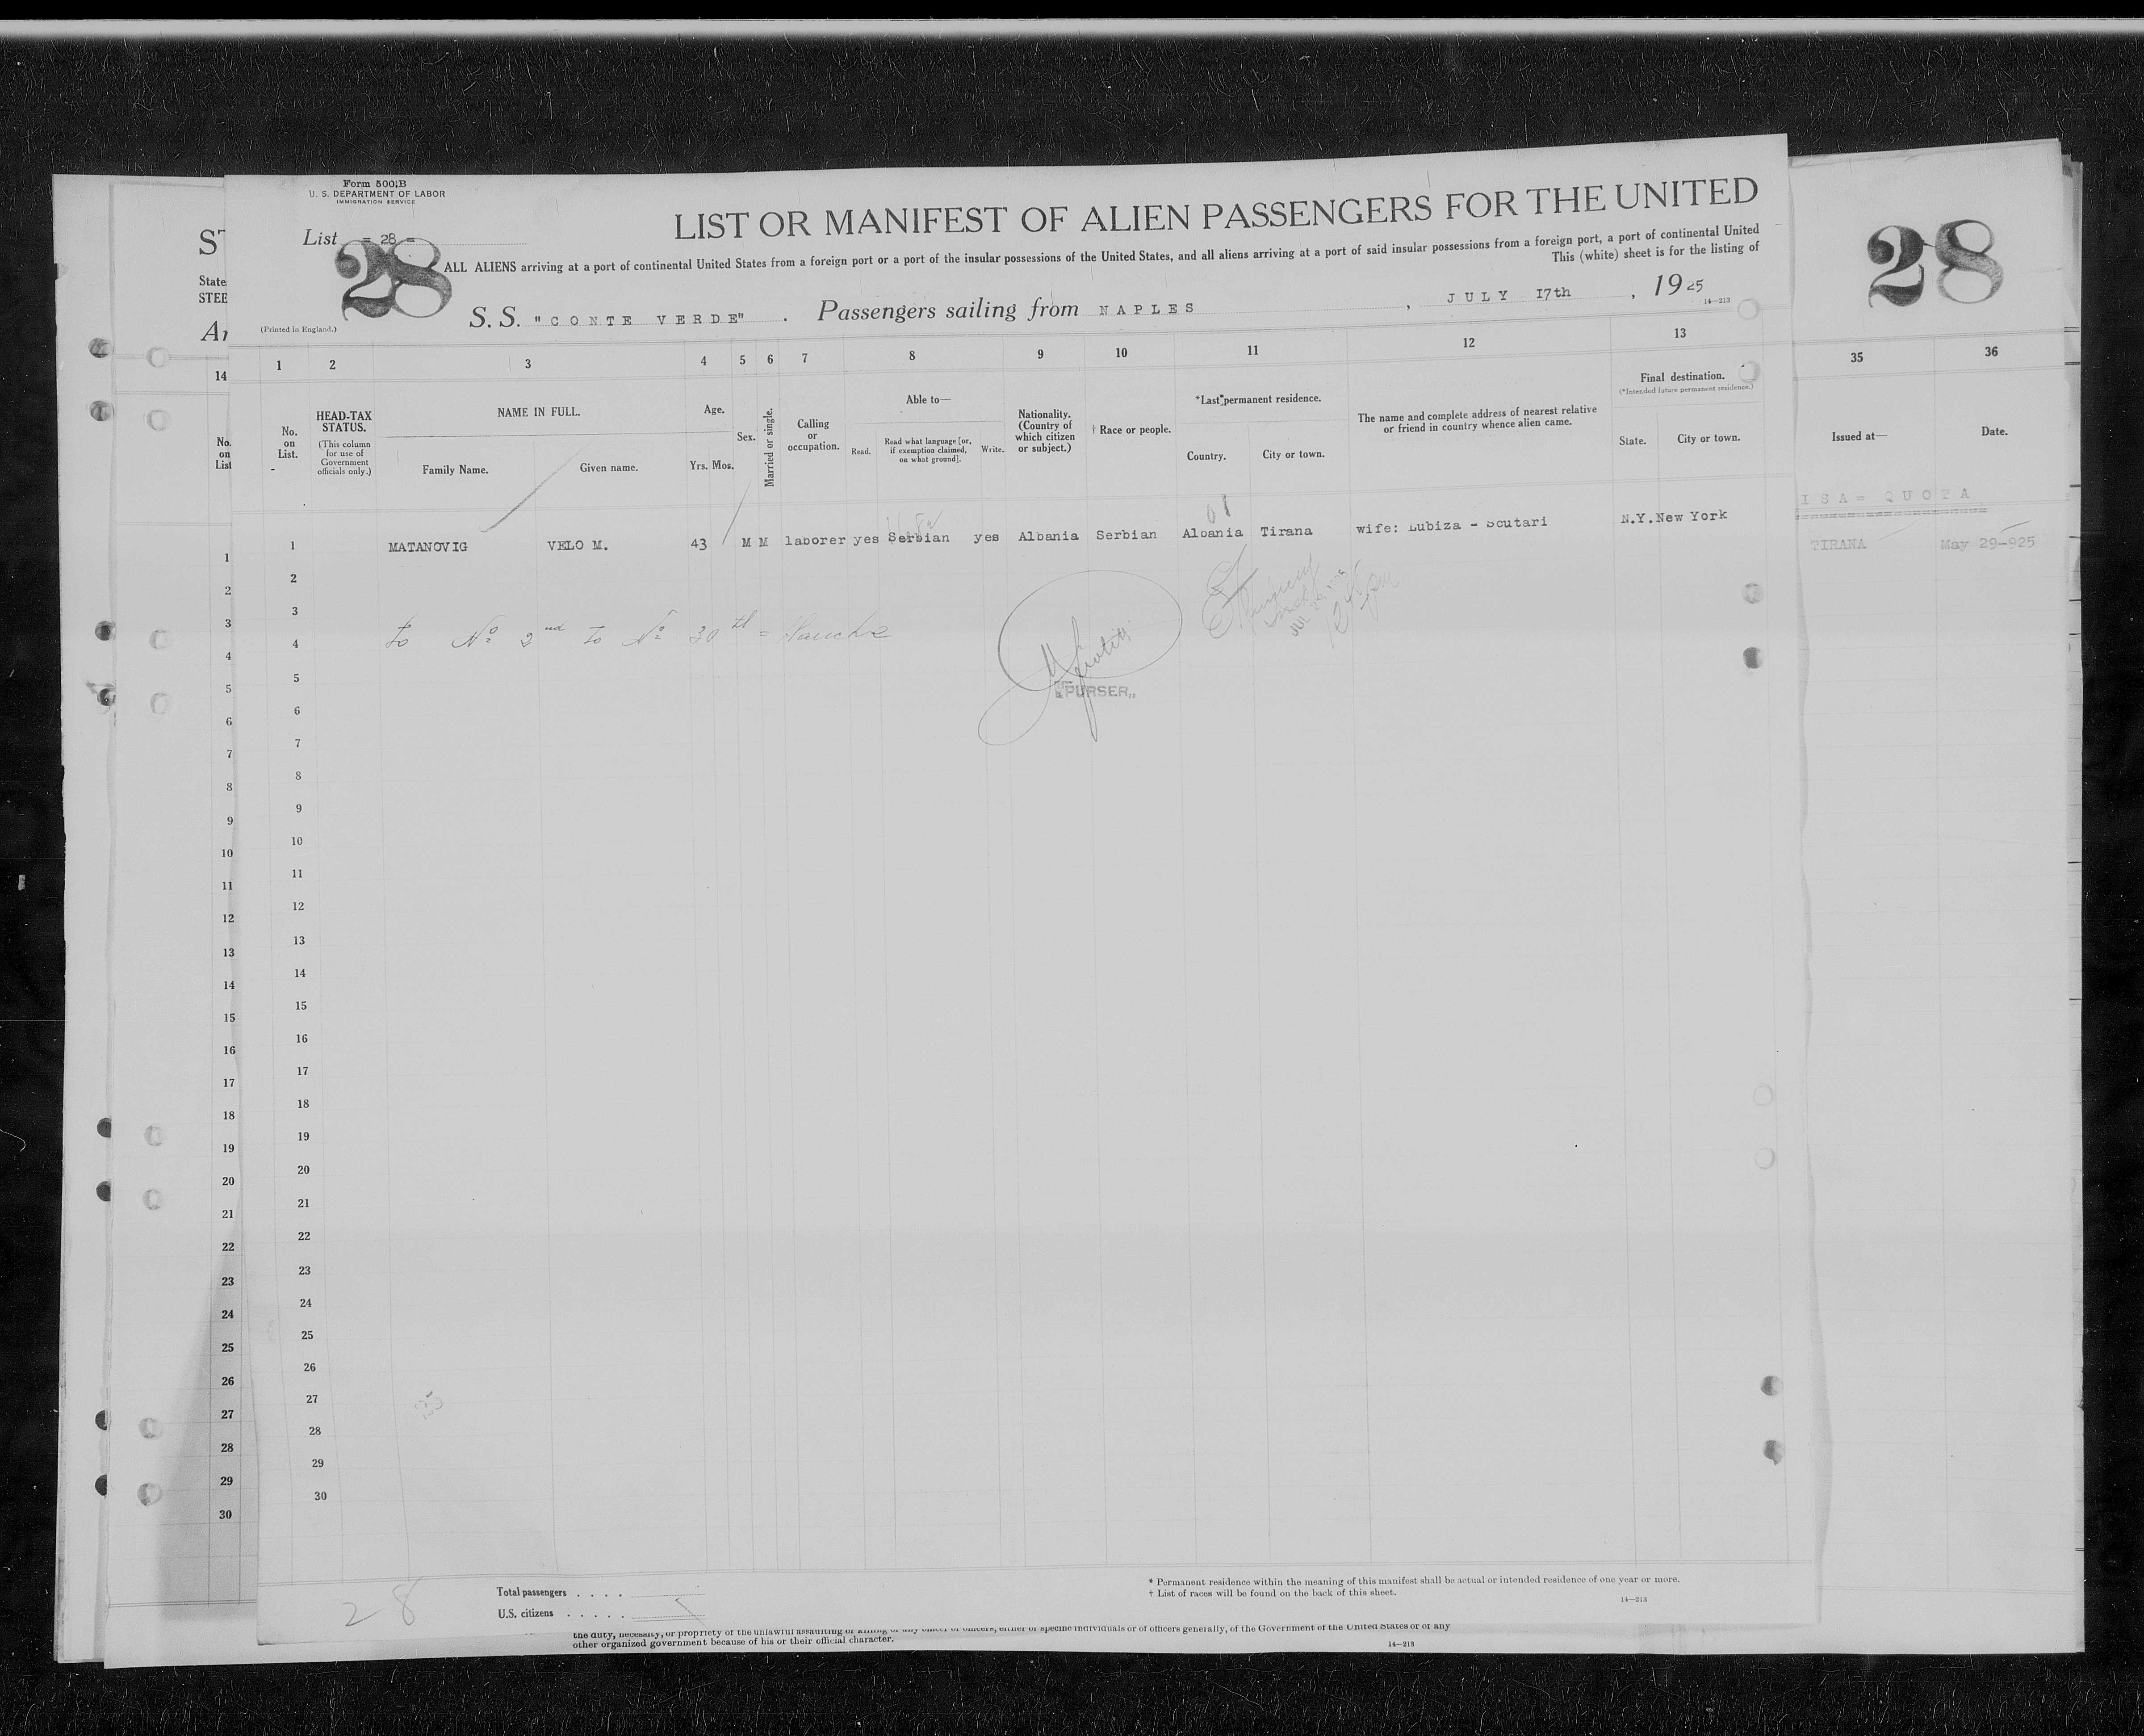 Form 500 B
U. S. DEPARTMENT OF LABOR
IMMIGRATION SERVICE
List = 28 =
28
LIST OR MANIFEST OF ALIEN PASSENGERS FOR THE UNITED
ALL ALIENS arriving at a port of continental United States from a foreign port or a port of the insular possessions of the United States, and all aliens arriving at a port of said insular possessions from a foreign port, a port of continental United
This (white) sheet is for the listing of
S. S. "CONTE VERDE". Passengers sailing from NAPLES, JULY 17th, 1925
14—213
(Printed in England.)
28
ST
State
STEE
Ar
1 2 3 4 5 6 7 8 9 10 11 12 13
14
35 36
No. on List.
HEAD-TAX STATUS.
(This column for use of Government officials only.)
NAME IN FULL.
Family Name. Given name.
Age.
Yrs. Mos.
Sex.
Married or single.
Calling or occupation.
Able to—
Read. Read what language [or, if exemption claimed, on what ground]. Write.
Nationality. (Country of which citizen or subject.)
† Race or people.
*Last permanent residence.
Country. City or town.
The name and complete address of nearest relative or friend in country whence alien came.
Final destination.
(*Intended future permanent residence.)
State. City or town.
No. on List
Issued at— Date.
ISA= QUOTA
1 MATANOVIG VELO M. 43 M M laborer yes Serbian yes Albania Serbian Albania Tirana wife: Lubiza - Scutari N.Y. New York
TIRANA May 29-925
2
3
4 to Nº 2nd to Nº 30th =
5
"PURSER"
6
7
8
9
10
11
12
13
14
15
16
17
18
19
20
21
22
23
24
25
26
27
28
29
30
1
2
3
4
5
6
7
8
9
10
11
12
13
14
15
16
17
18
19
20
21
22
23
24
25
26
27
28
29
30
28
Total passengers . . . .
U.S. citizens . . . . .
* Permanent residence within the meaning of this manifest shall be actual or intended residence of one year or more.
† List of races will be found on the back of this sheet.
14—213
the duty, necessity, or propriety of the unlawful assaulting or killing of any officer or officers, either of specific individuals or of officers generally, of the Government of the United States or of any
other organized government because of his or their official character.
14—213